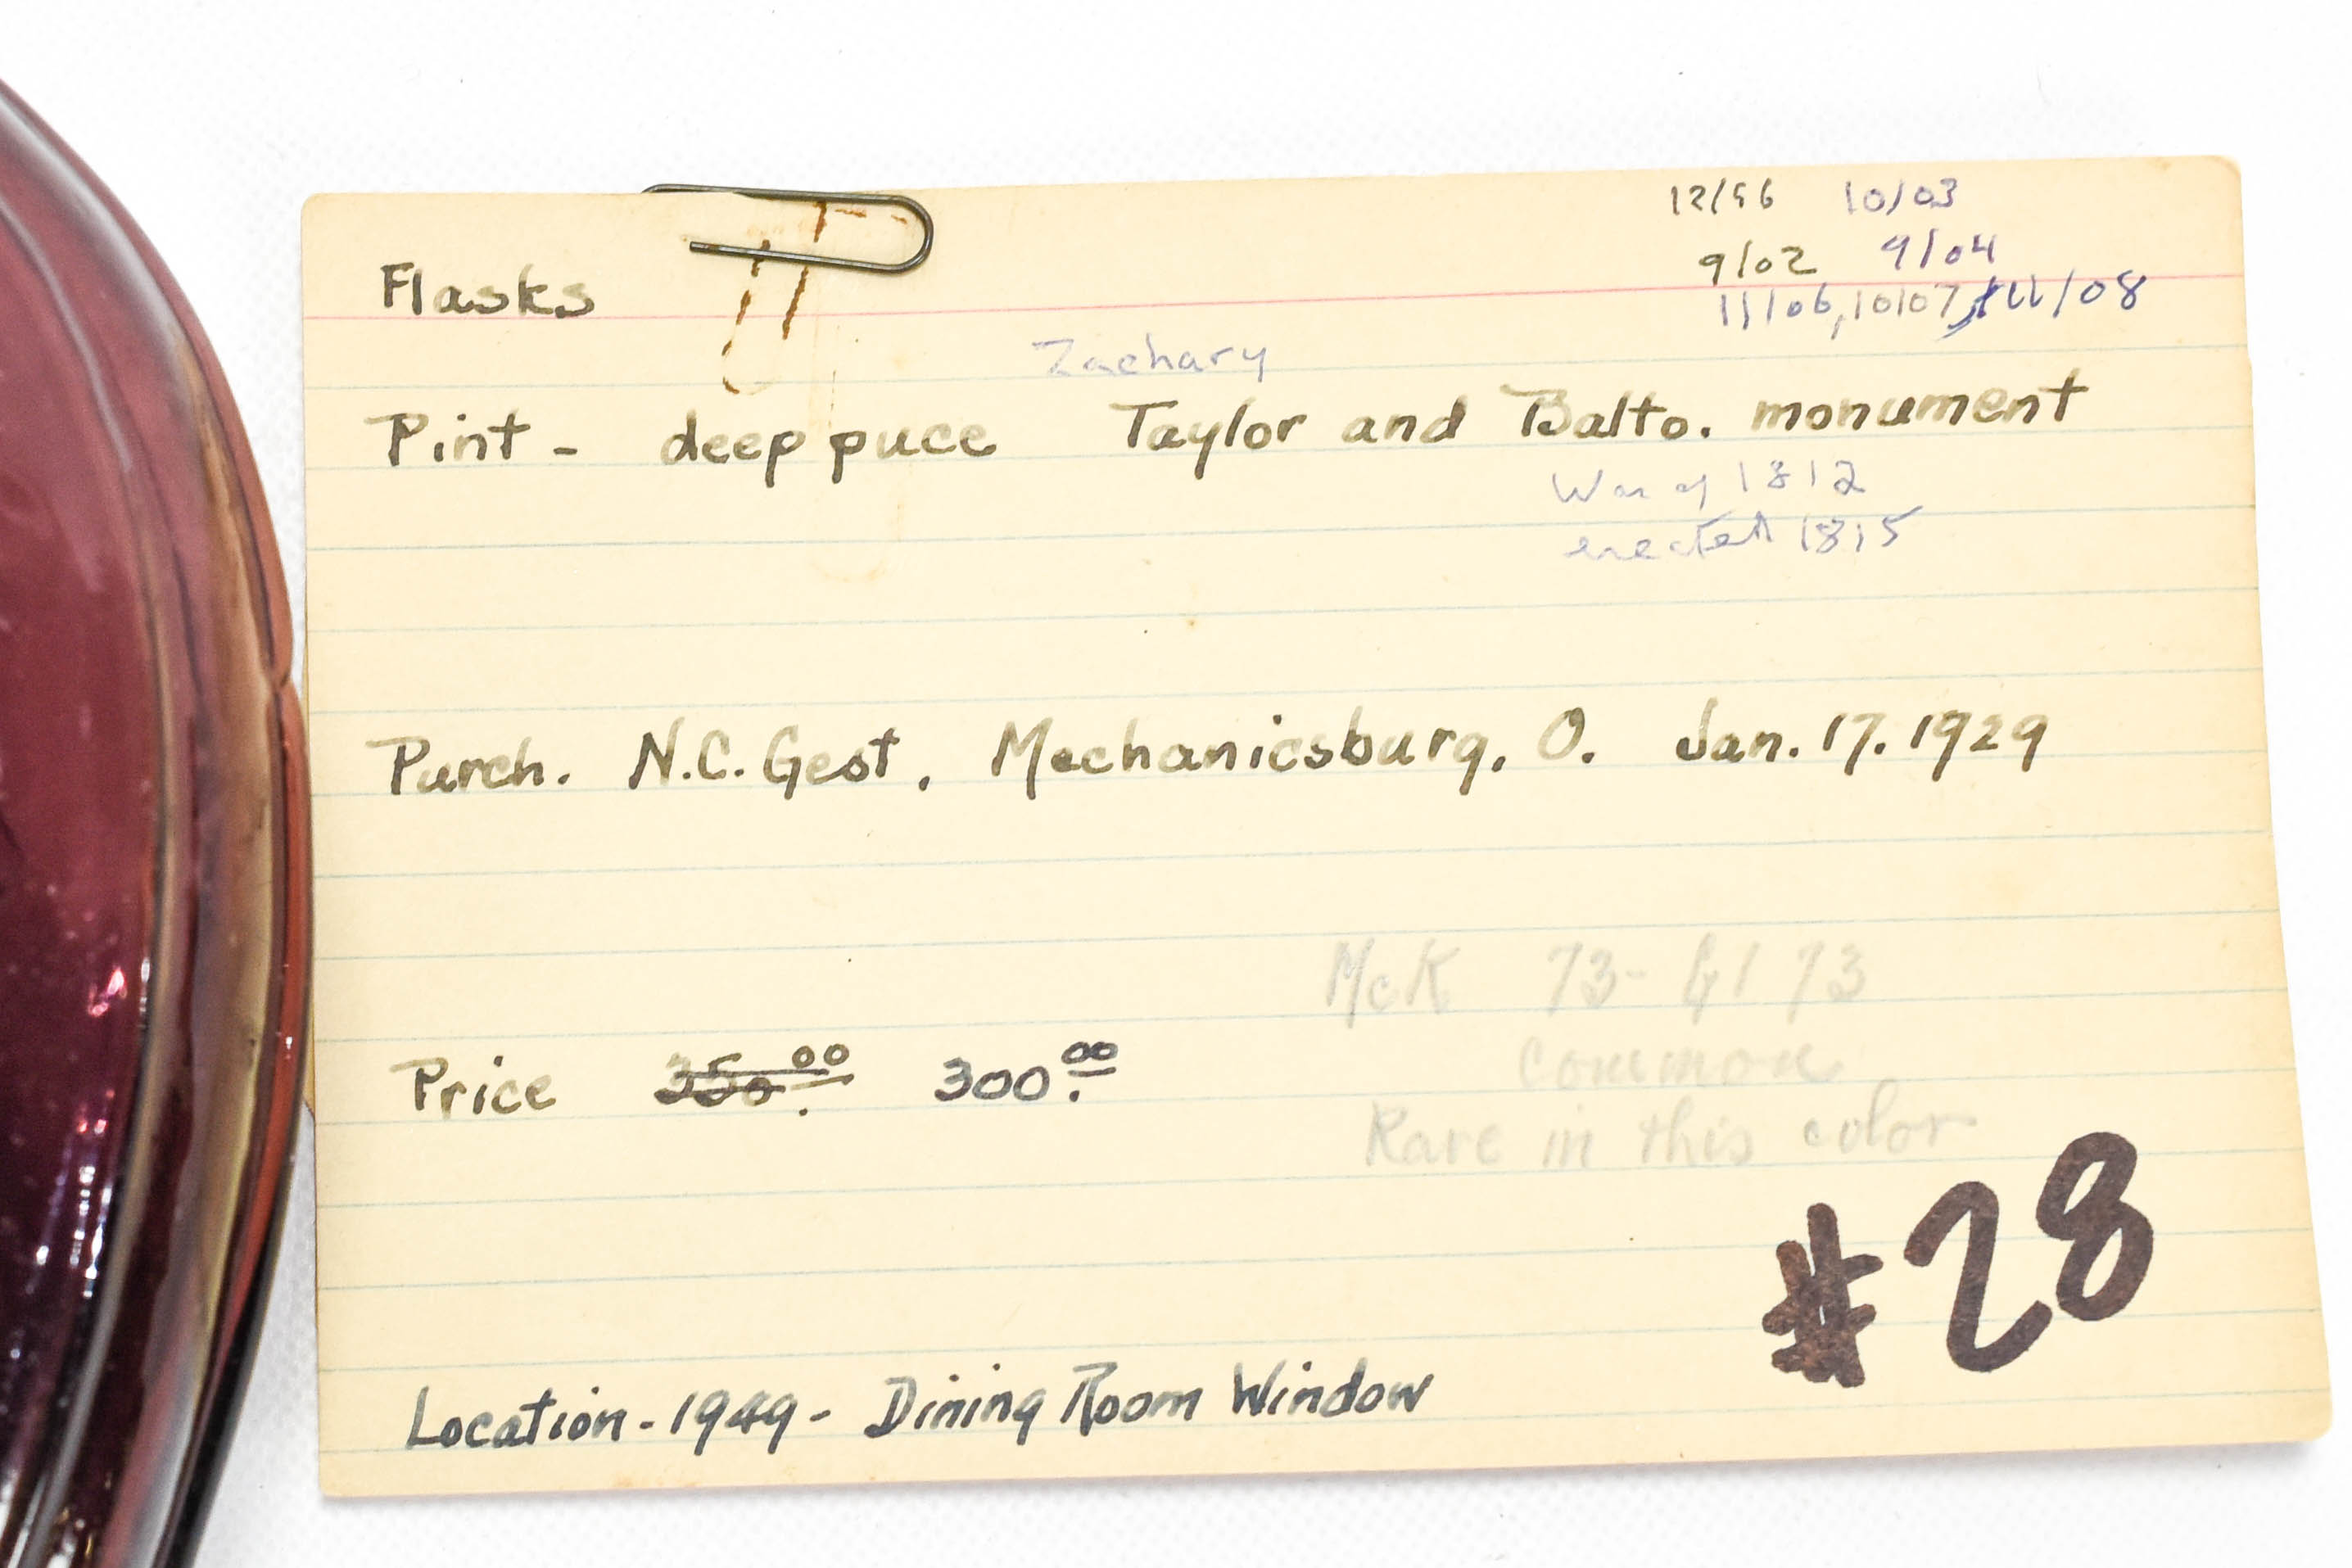 12/96 10/03
9/02 9/04
Flasks
11/06, 10/07, 11/08
Zachary
Pint - deep puce Taylor and Balto. monument
War of 1812
erected 1815
Purch. N.C. Gest, Mechanicsburg, O. Jan. 17. 1929
McK 73- G1 73
Common
Price 350.00 300.00
Rare in this color
#28
Location - 1949 - Dining Room Window